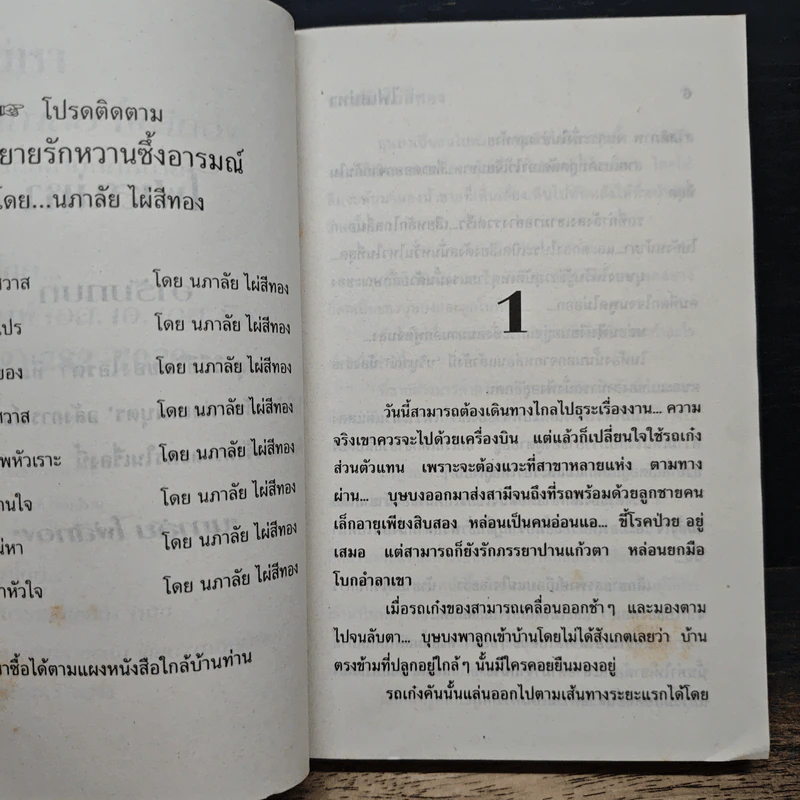 ☞ โปรดติดตาม
ยายรักหวานซึ้งอารมณ์
โดย...นภาลัย ไผ่สีทอง
วาส โดย นภาลัย ไผ่สีทอง
แปร โดย นภาลัย ไผ่สีทอง
ยอง โดย นภาลัย ไผ่สีทอง
วาส โดย นภาลัย ไผ่สีทอง
พหัวเราะ โดย นภาลัย ไผ่สีทอง
านใจ โดย นภาลัย ไผ่สีทอง
น่หา โดย นภาลัย ไผ่สีทอง
าหัวใจ โดย นภาลัย ไผ่สีทอง
าซื้อได้ตามแผงหนังสือใกล้บ้านท่าน
1
วันนี้สามารถต้องเดินทางไกลไปธุระเรื่องงาน... ความ
จริงเขาควรจะไปด้วยเครื่องบิน แต่แล้วก็เปลี่ยนใจใช้รถเก๋ง
ส่วนตัวแทน เพราะจะต้องแวะที่สาขาหลายแห่ง ตามทาง
ผ่าน... บุษบงออกมาส่งสามีจนถึงที่รถพร้อมด้วยลูกชายคน
เล็กอายุเพียงสิบสอง หล่อนเป็นคนอ่อนแอ... ขี้โรคป่วย อยู่
เสมอ แต่สามารถก็ยังรักภรรยาปานแก้วตา หล่อนยกมือ
โบกอำลาเขา
เมื่อรถเก๋งของสามารถเคลื่อนออกช้าๆ และมองตาม
ไปจนลับตา... บุษบงพาลูกเข้าบ้านโดยไม่ได้สังเกตเลยว่า บ้าน
ตรงข้ามที่ปลูกอยู่ใกล้ๆ นั้นมีใครคอยยืนมองอยู่
รถเก๋งคันนั้นแล่นออกไปตามเส้นทางระยะแรกได้โดย